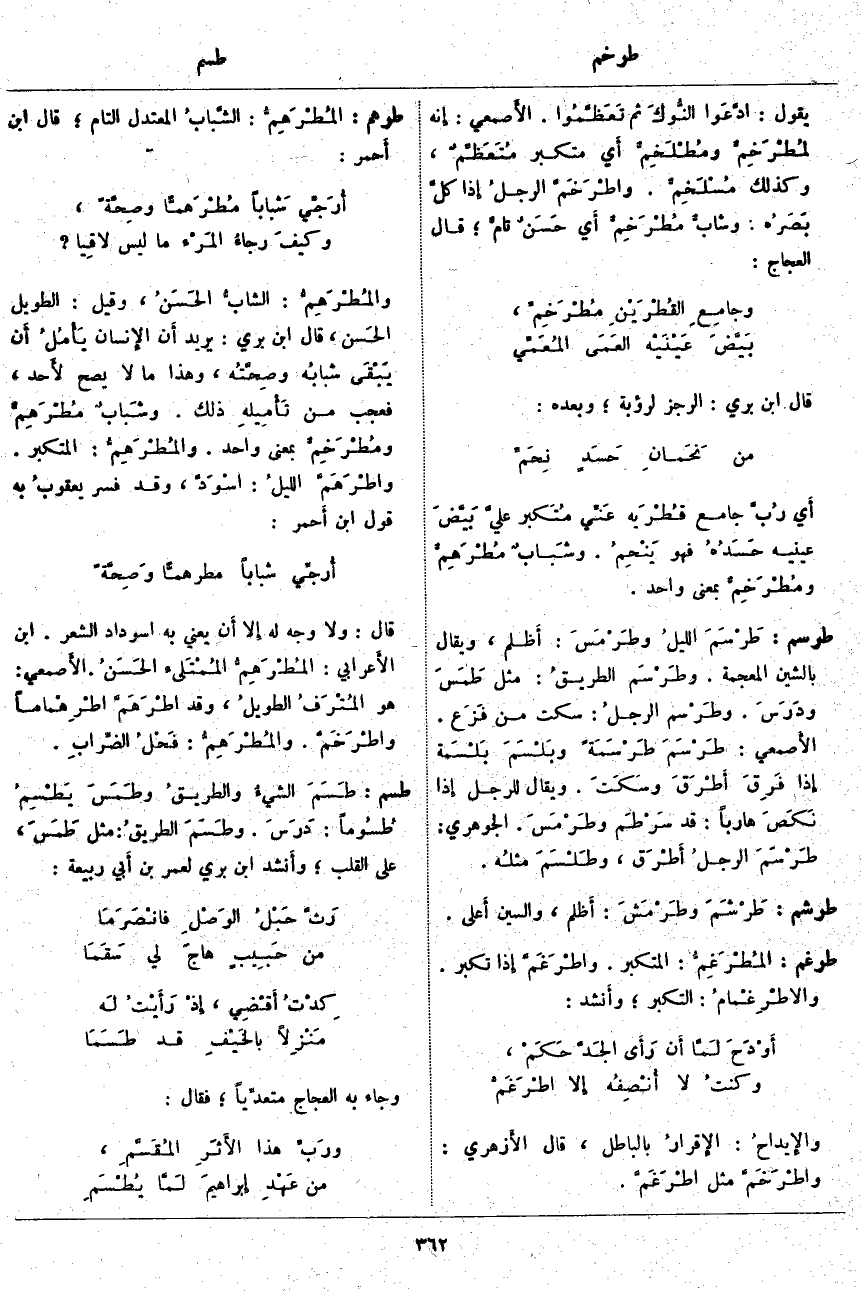 طرخم
طسم
يقول : ادَّعَوا النُّوكَ ثم تَعَظَّمُوا . الأصمعي : إنه
لمُطْرَخِمٌّ ومُطْلَخِمٌّ أي متكبر مُتَعَظِّمٌ ،
وكذلك مُسْلَخِمٌّ . واطْرَخَمَّ الرجلُ إذا كلَّ
بَصَرُه : وشابٌّ مُطْرَخِمٌّ أي حَسَنٌ تامٌّ ؛ قال
العجاج :
وجامِعِ القُطْرَيْنِ مُطْرَخِمِّ ،
بَيَّضَ عَيْنَيْه العَمَى المُعَمِّي
قال ابن بري : الرجز لرؤبة ؛ وبعده :
من نَحَمانِ حَسَدٍ نِحَمِّ
أي رُبَّ جامع قُطْرَيه عَنِّي مُتَكبر عليَّ بَيَّضَ
عينيه حَسَدُهُ فهو يَنْحِمُ . وشَبابٌ مُطْرَهِمٌّ
ومُطْرَخِمٌّ بمعنى واحد .
طرسم : طَرْسَمَ الليلُ وطَرْمَسَ : أظلم ، ويقال
بالشين المعجمة . وطَرْسَم الطريقُ : مثل طَمَسَ
ودَرَسَ . وطَرْسم الرجلُ : سكت من فَزَع .
الأصمعي : طَرْسَمَ طَرْسَمَةً وبَلْسَمَ بَلْسَمة
إذا فَرِقَ أَطْرَقَ وسَكَتَ . ويقال للرجل إذا
نَكَصَ هارباً : قد سَرْطَم وطَرْمَسَ . الجوهري :
طَرْسَمَ الرجلُ أطْرَق ، وطَلْسَمَ مثلُه .
طرشم : طَرْشَمَ وطَرْمَشَ : أظلم ، والسين أعلى .
طرغم : المُطْرَغِمُّ : المتكبر . واطْرَغَمَّ إذا تكبر .
والاطْرِغْمامُ : التكبر ؛ وأنشد :
أوْدَحَ لَمَّا أن رَأى الجَدَّ حَكَمْ ،
وكنتُ لا أُنْصِفُه إلا اطْرَغَمّْ
والإيداحُ : الإقرارُ بالباطل ، قال الأزهري :
واطْرَخَمَّ مثل اطْرَغَمَّ .
طرهم : المُطْرَهِمُّ : الشَّبابُ المعتدل التام ؛ قال ابن
أحمر :
أُرَجِّي شَباباً مُطْرَهِمًّا وصِحَّةً ،
وكيفَ رجاءُ المَرْء ما ليس لاقِيا ؟
والمُطْرَهِمُّ : الشابُّ الحَسَنُ ، وقيل : الطويل
الحَسن ، قال ابن بري : يريد أن الإنسان يَأْمُلُ أن
يَبْقَى شبابُه وصحَّتُه ، وهذا ما لا يصح لأحد ،
فعجب من تَأْمِيلِهِ ذلك . وشَبابٌ مُطْرَهِمٌّ
ومُطْرَخِمٌّ بمعنى واحد . والمُطْرَهِمُّ : المتكبر .
واطْرَهَمَّ الليلُ : اسْوَدَّ ، وقد فسر يعقوبُ به
قول ابن أحمر :
أرجِّي شباباً مطرهمًّا وَصِحَّةً
قال : ولا وجه له إلا أن يعني به اسوداد الشعر . ابن
الأعرابي : المُطْرَهِمُّ المُمْتَلىء الحَسَنُ . الأصمعي :
هو المُتْرَفُ الطويلُ ، وقد اطْرَهَمَّ اطْرِهْماماً
واطْرَخَمَّ . والمُطْرَهِمُّ : فَحْلُ الضِّرابِ .
طسم : طَسَمَ الشيءُ والطريقُ وطَمَسَ يَطْسِمُ
طُسُوماً : دَرَسَ . وطَسَمَ الطريقُ : مثل طَمَسَ ،
على القلب ؛ وأنشد ابن بري لعمر بن أبي ربيعة :
رَثَّ حَبْلُ الوَصْلِ فانْصَرَمَا
من حَبيبٍ هاجَ لي سَقَمَا
كِدْتُ أقْضِي ، إذْ رَأيْتُ لَه
مَنْزِلاً بالخَيْفِ قد طَسَمَا
وجاء به العجاج متعدّياً ؛ فقال :
ورَبِّ هذا الأثَرِ المُقَسَّمِ ،
من عَهْدِ إبراهيمَ لَمَّا يُطْسَمِ
٣٦٢